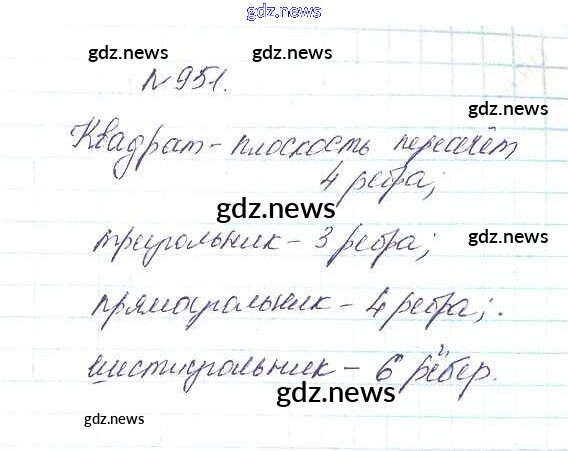 gdz.news
gdz.news gdz.news
№951.
gdz.news
Квадрат - плоскость пересечёт
4 ребра;
gdz.news
треугольник - 3 ребра;
gdz.news
прямоугольник - 4 ребра;
gdz.news
шестиугольник - 6 рёбер.
gdz.news
gdz.news